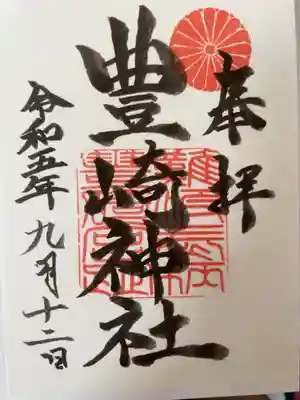 奉拝
豊崎神社
令和五年九月十二日